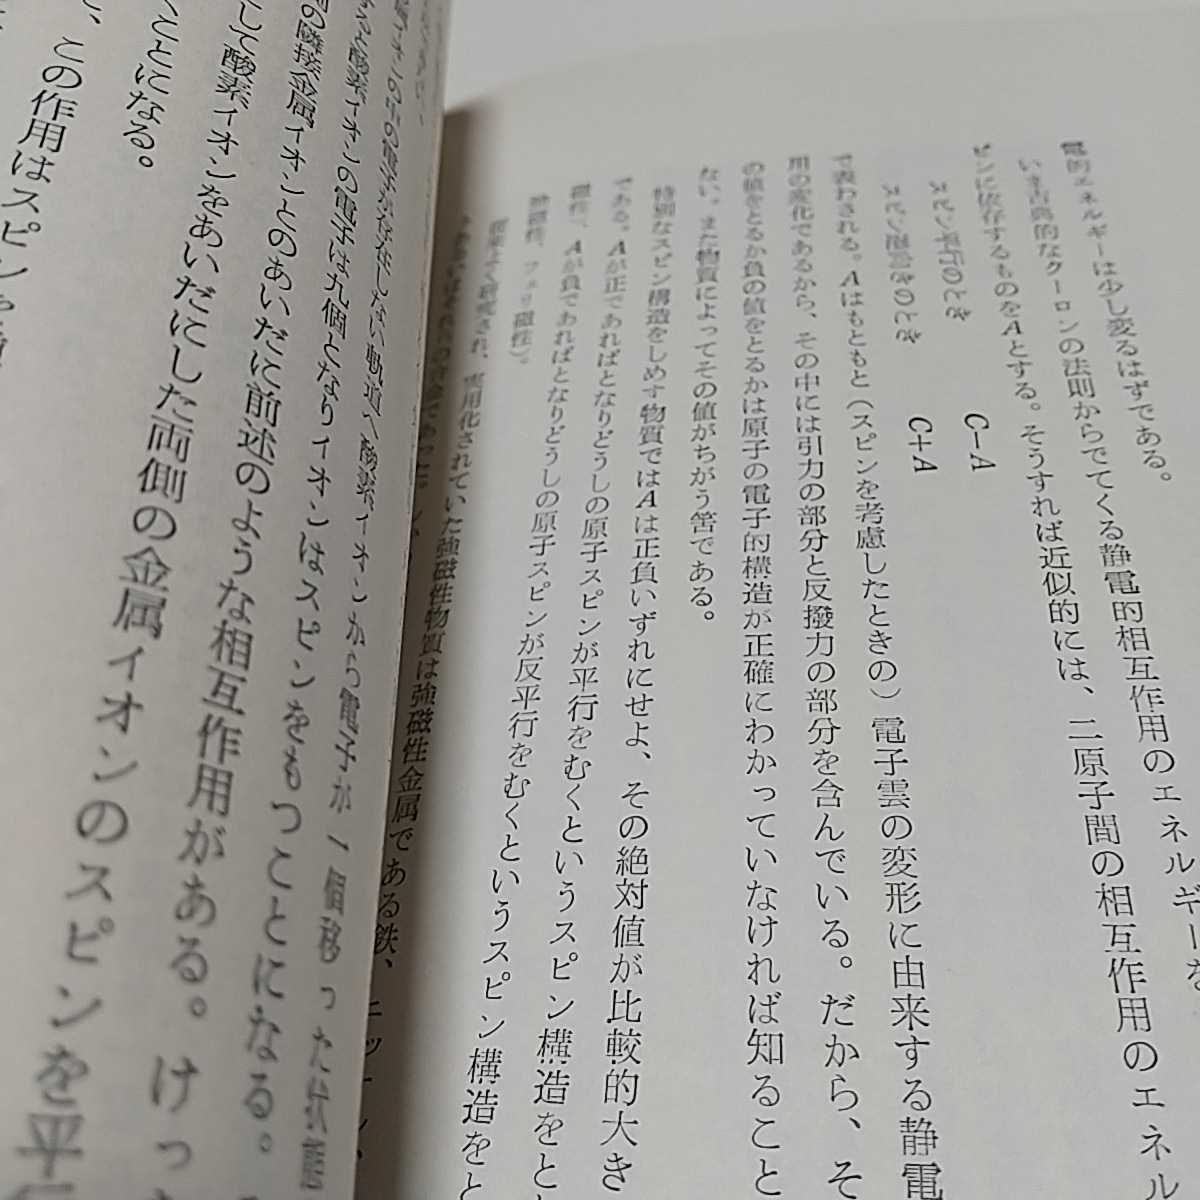 電的エネルギーは少し変るはずである。
いま古典的なクーロンの法則からでてくる静電的相互作用のエネルギーを
ピンに依存するものをAとする。そうすれば近似的には、二原子間の相互作用のエネル
スピン平行のとき C－A
スピン逆向きのとき C＋A
で表わされる。Aはもともと（スピンを考慮したときの）電子雲の変形に由来する静電
用の変化であるから、その中には引力の部分と反撥力の部分を含んでいる。だから、そ
の値をとるか負の値をとるかは原子の電子的構造が正確にわかっていなければ知ること
ない。また物質によってその値がちがう筈である。
特別なスピン構造をしめす物質ではAは正負いずれにせよ、その絶対値が比較的大き
である。Aが正であればとなりどうしの原子スピンが平行をむくというスピン構造をと
磁性、Aが負であればとなりどうしの原子スピンが反平行をむくというスピン構造をと
強磁性、フェリ磁性）。
従来よく研究され、実用化されていた強磁性物質は強磁性金属である鉄、ニッケル、
の電子が存在しない軌道へ酸素イオンから電子が一個移った状態
ると酸素イオンの電子は九個となりイオンはスピンをもつことになる。
側の隣接金属イオンとのあいだに前述のような相互作用がある。けっ
して酸素イオンをあいだにした両側の金属イオンのスピンを平行
ことになる。
、この作用はスピン